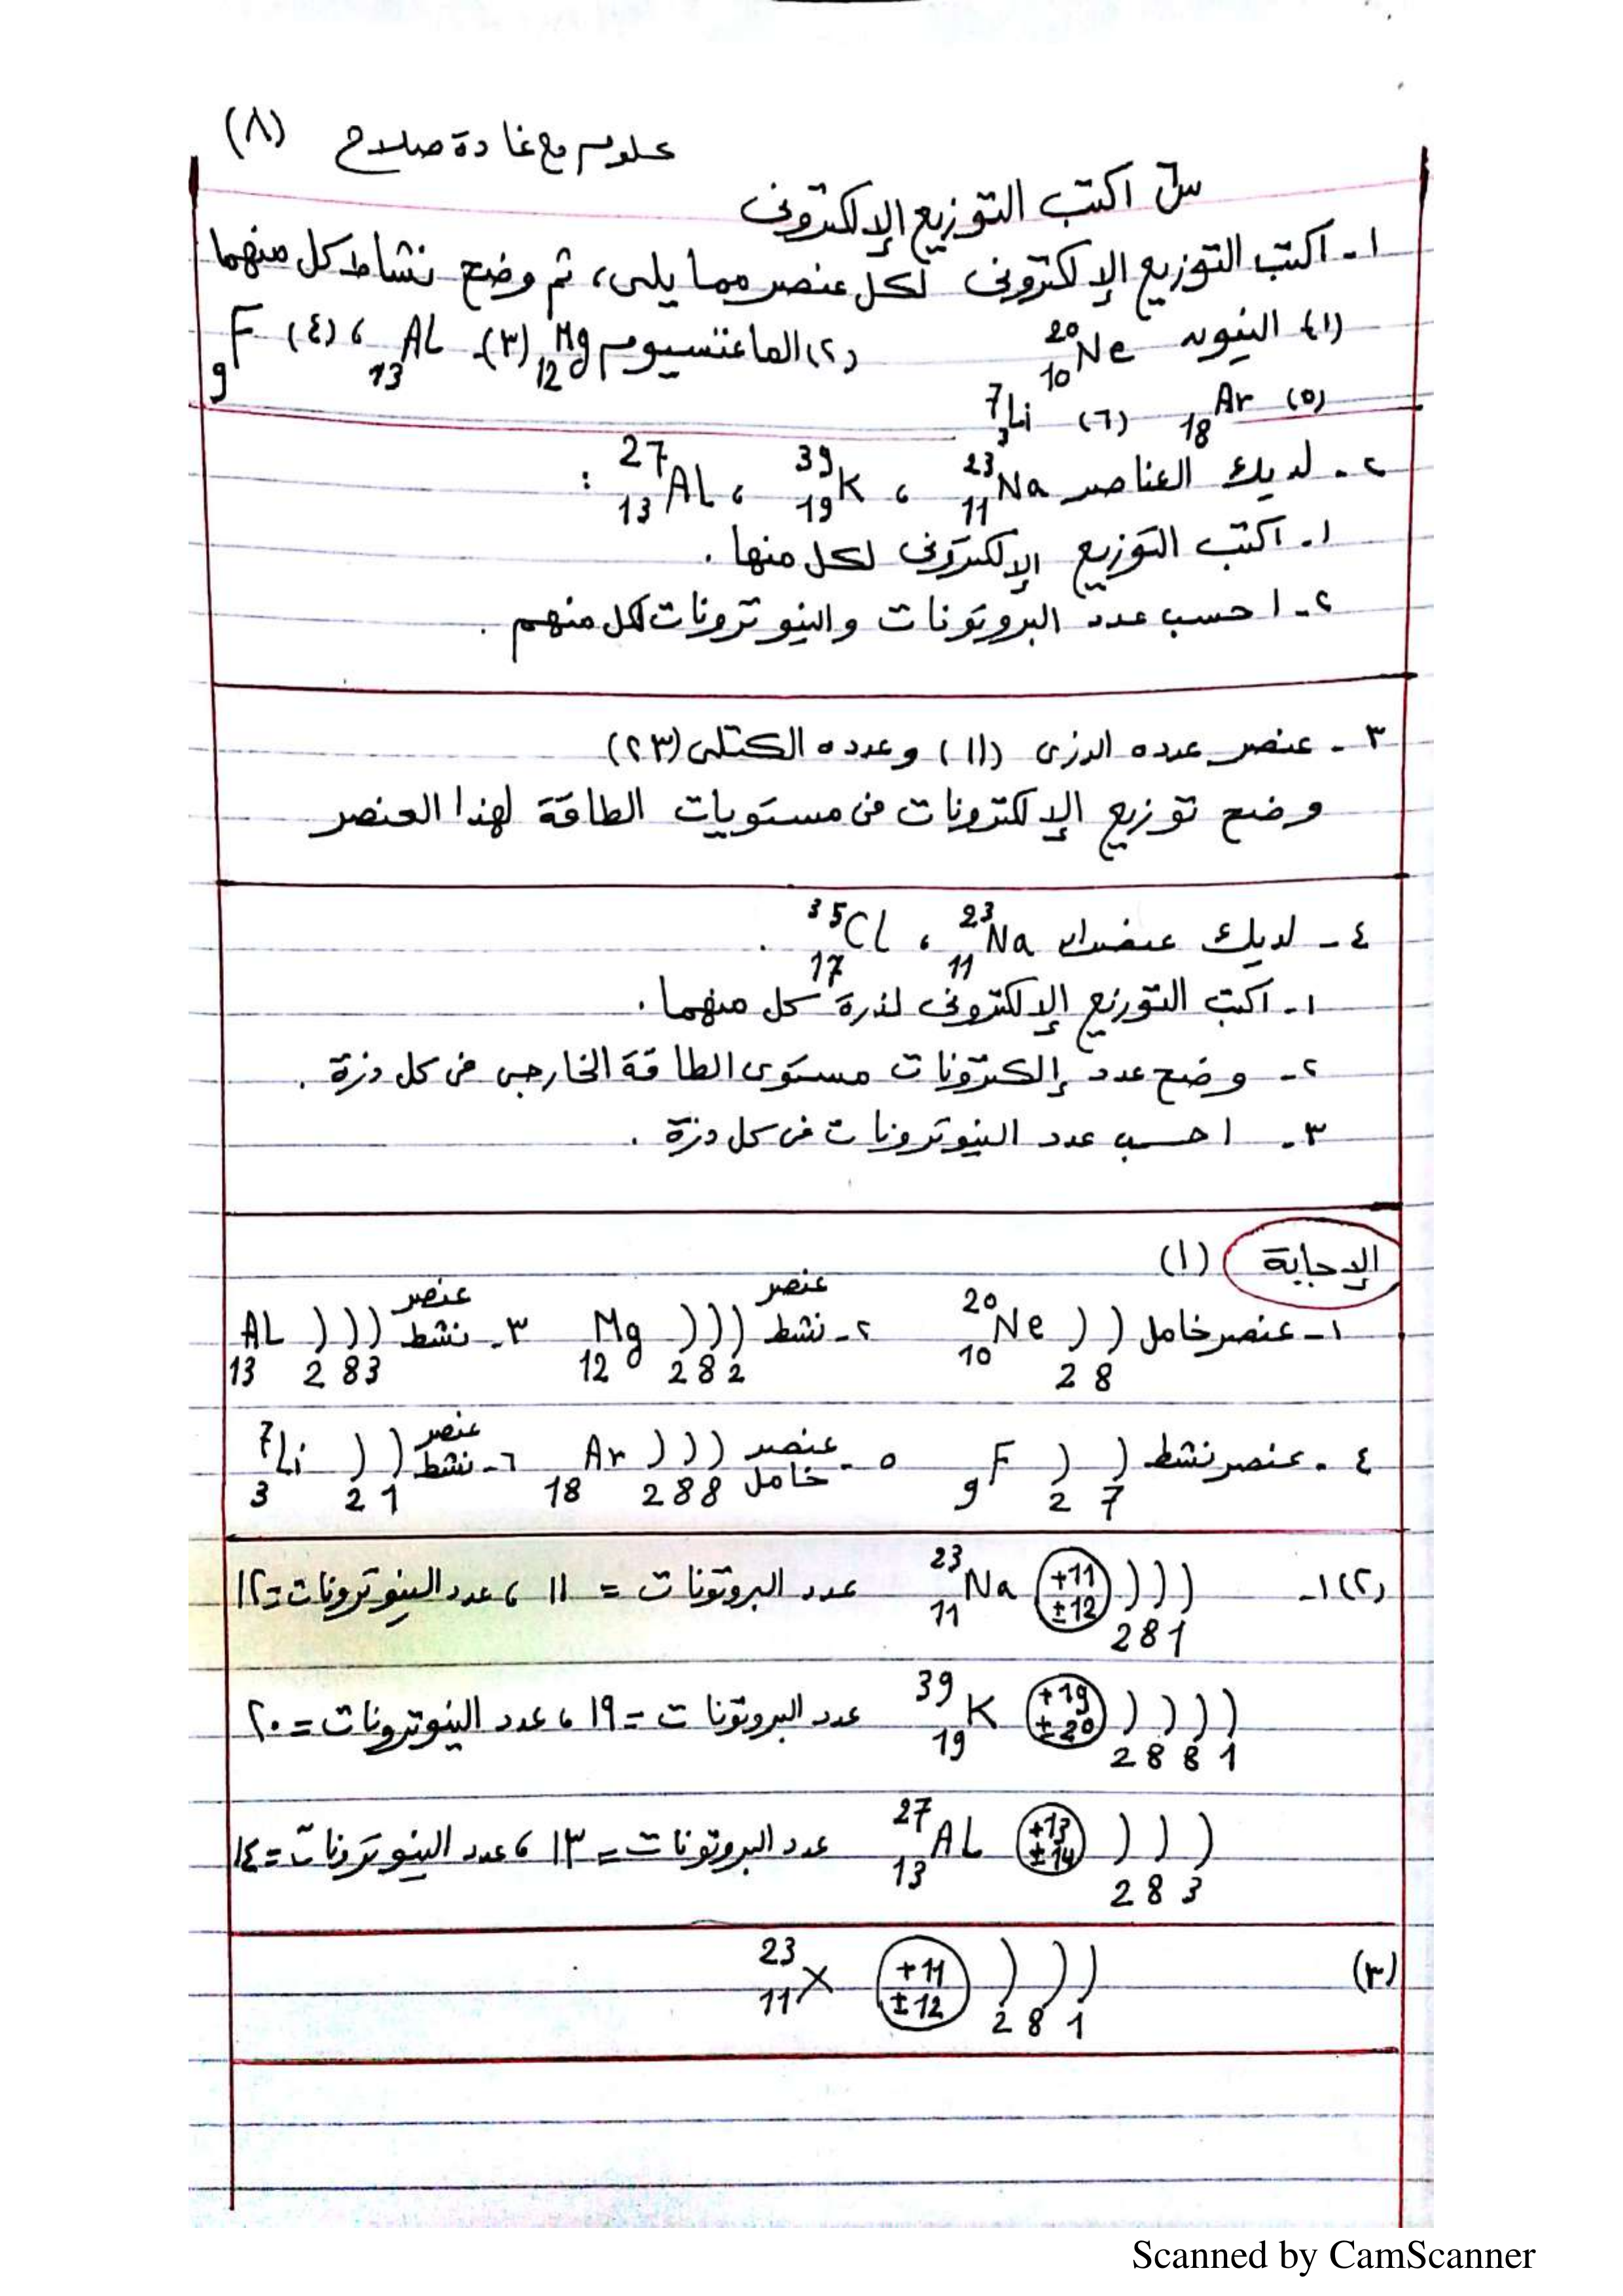 علوم مع غادة صلاح (٨)
س٦ اكتب التوزيع الإلكترونى
١- اكتب التوزيع الإلكترونى لكل عنصر مما يلى، ثم وضح نشاط كل منهما
(١) النيون ²⁰₁₀Ne (٢) الماغنسيوم ₁₂Mg (٣)- ₁₃AL ، (٤) ₉F
(٥) ₁₈Ar (٦) ⁷₃Li
٢- لديك العناصر ²³₁₁Na ، ³⁹₁₉K ، ²⁷₁₃AL :
١- اكتب التوزيع الإلكترونى لكل منها .
٢- احسب عدد البروتونات والنيوترونات لكل منهم .
٣- عنصر عدده الذرى (١١) وعدده الكتلى (٢٣)
وضح توزيع الإلكترونات فى مستويات الطاقة لهذا العنصر
٤- لديك عنصران ²³₁₁Na ، ³⁵₁₇Cl .
١- اكتب التوزيع الإلكترونى لذرة كل منهما .
٢- وضح عدد إلكترونات مستوى الطاقة الخارجى فى كل ذرة .
٣- احسب عدد النيوترونات فى كل ذرة .
الإجابة (١)
١- عنصر خامل ²⁰₁₀Ne ) ) 2 8 ٢- عنصر نشط ₁₂Mg ) ) ) 2 8 2 ٣- عنصر نشط ₁₃AL ) ) ) 2 8 3
٤- عنصر نشط ₉F ) ) 2 7 ٥- عنصر خامل ₁₈Ar ) ) ) 2 8 8 ٦- عنصر نشط ⁷₃Li ) ) 2 1
(٢) ١- ²³₁₁Na +11 ±12 ) ) ) 2 8 1 عدد البروتونات = ١١ ، عدد النيوترونات = ١٢
³⁹₁₉K +19 ±20 ) ) ) ) 2 8 8 1 عدد البروتونات = ١٩ ، عدد النيوترونات = ٢٠
²⁷₁₃AL +13 ±14 ) ) ) 2 8 3 عدد البروتونات = ١٣ ، عدد النيوترونات = ١٤
(٣) ²³₁₁X +11 ±12 ) ) ) 2 8 1
Scanned by CamScanner